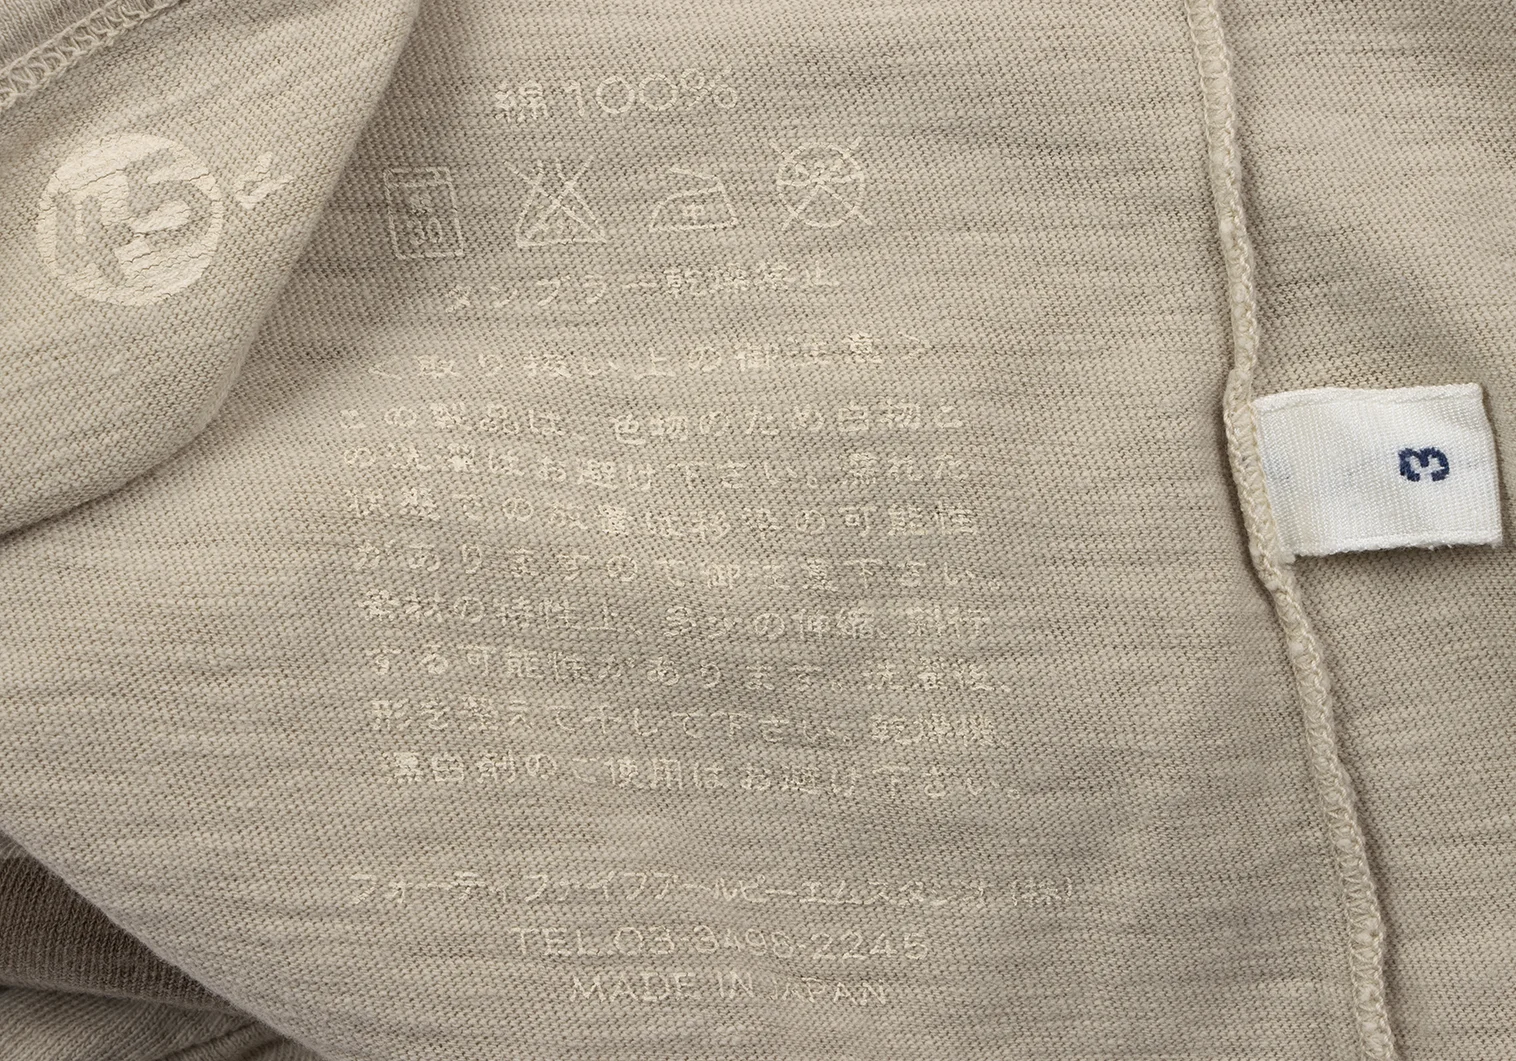 綿100%
タンブラー乾燥禁止
<取り扱い上の御注意>
この製品は、色物のため白物と
の洗濯はお避け下さい。濡れた
状態での放置は移染の可能性
がありますので御注意下さい。
素材の特性上、多少の伸縮、斜行
する可能性があります。洗濯後、
形を整えて干して下さい。乾燥機、
漂白剤のご使用はお避け下さい。
フォーティファイブアールピーエムスタジオ(株)
TEL.03-3496-2245
MADE IN JAPAN
3